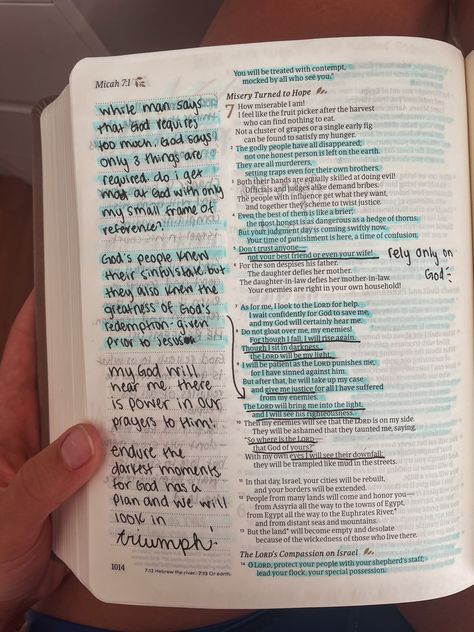 Micah 7:1
while man says
that God requires
too much, God says
only 3 things are
required. do i get
mad at God with only
my small frame of
reference?
God's people knew
their sinful state but
they also knew the
greatness of God's
redemption - given
prior to Jesus
my God will
hear me. there
is power in our
prayers to Him!
endure the
darkest moments
for God has a
plan and we will
look in
triumph.
1014
You will be treated with contempt,
mocked by all who see you."
Misery Turned to Hope
7 How miserable I am!
I feel like the fruit picker after the harvest
who can find nothing to eat.
Not a cluster of grapes or a single early fig
can be found to satisfy my hunger.
2 The godly people have all disappeared;
not one honest person is left on the earth.
They are all murderers,
setting traps even for their own brothers.
3 Both their hands are equally skilled at doing evil!
Officials and judges alike demand bribes.
The people with influence get what they want,
and together they scheme to twist justice.
4 Even the best of them is like a brier;
the most honest is as dangerous as a hedge of thorns.
But your judgment day is coming swiftly now.
Your time of punishment is here, a time of confusion.
5 Don't trust anyone—
not your best friend or even your wife!
rely only on
God
6 For the son despises his father.
The daughter defies her mother.
The daughter-in-law defies her mother-in-law.
Your enemies are right in your own household!
7 As for me, I look to the LORD for help.
I wait confidently for God to save me,
and my God will certainly hear me.
8 Do not gloat over me, my enemies!
For though I fall, I will rise again.
Though I sit in darkness,
the LORD will be my light.
9 I will be patient as the LORD punishes me,
for I have sinned against him.
But after that, he will take up my case
and give me justice for all I have suffered
from my enemies.
The LORD will bring me into the light,
and I will see his righteousness.
10 Then my enemies will see that the LORD is on my side.
They will be ashamed that they taunted me, saying,
"So where is the LORD—
that God of yours?"
With my own eyes I will see their downfall;
they will be trampled like mud in the streets.
11 In that day, Israel, your cities will be rebuilt,
and your borders will be extended.
12 People from many lands will come and honor you—
from Assyria all the way to the towns of Egypt,
from Egypt all the way to the Euphrates River,*
and from distant seas and mountains.
13 But the land* will become empty and desolate
because of the wickedness of those who live there.
The LORD's Compassion on Israel
14 O LORD, protect your people with your shepherd's staff;
lead your flock, your special possession.
7:12 Hebrew the river. 7:13 Or earth.